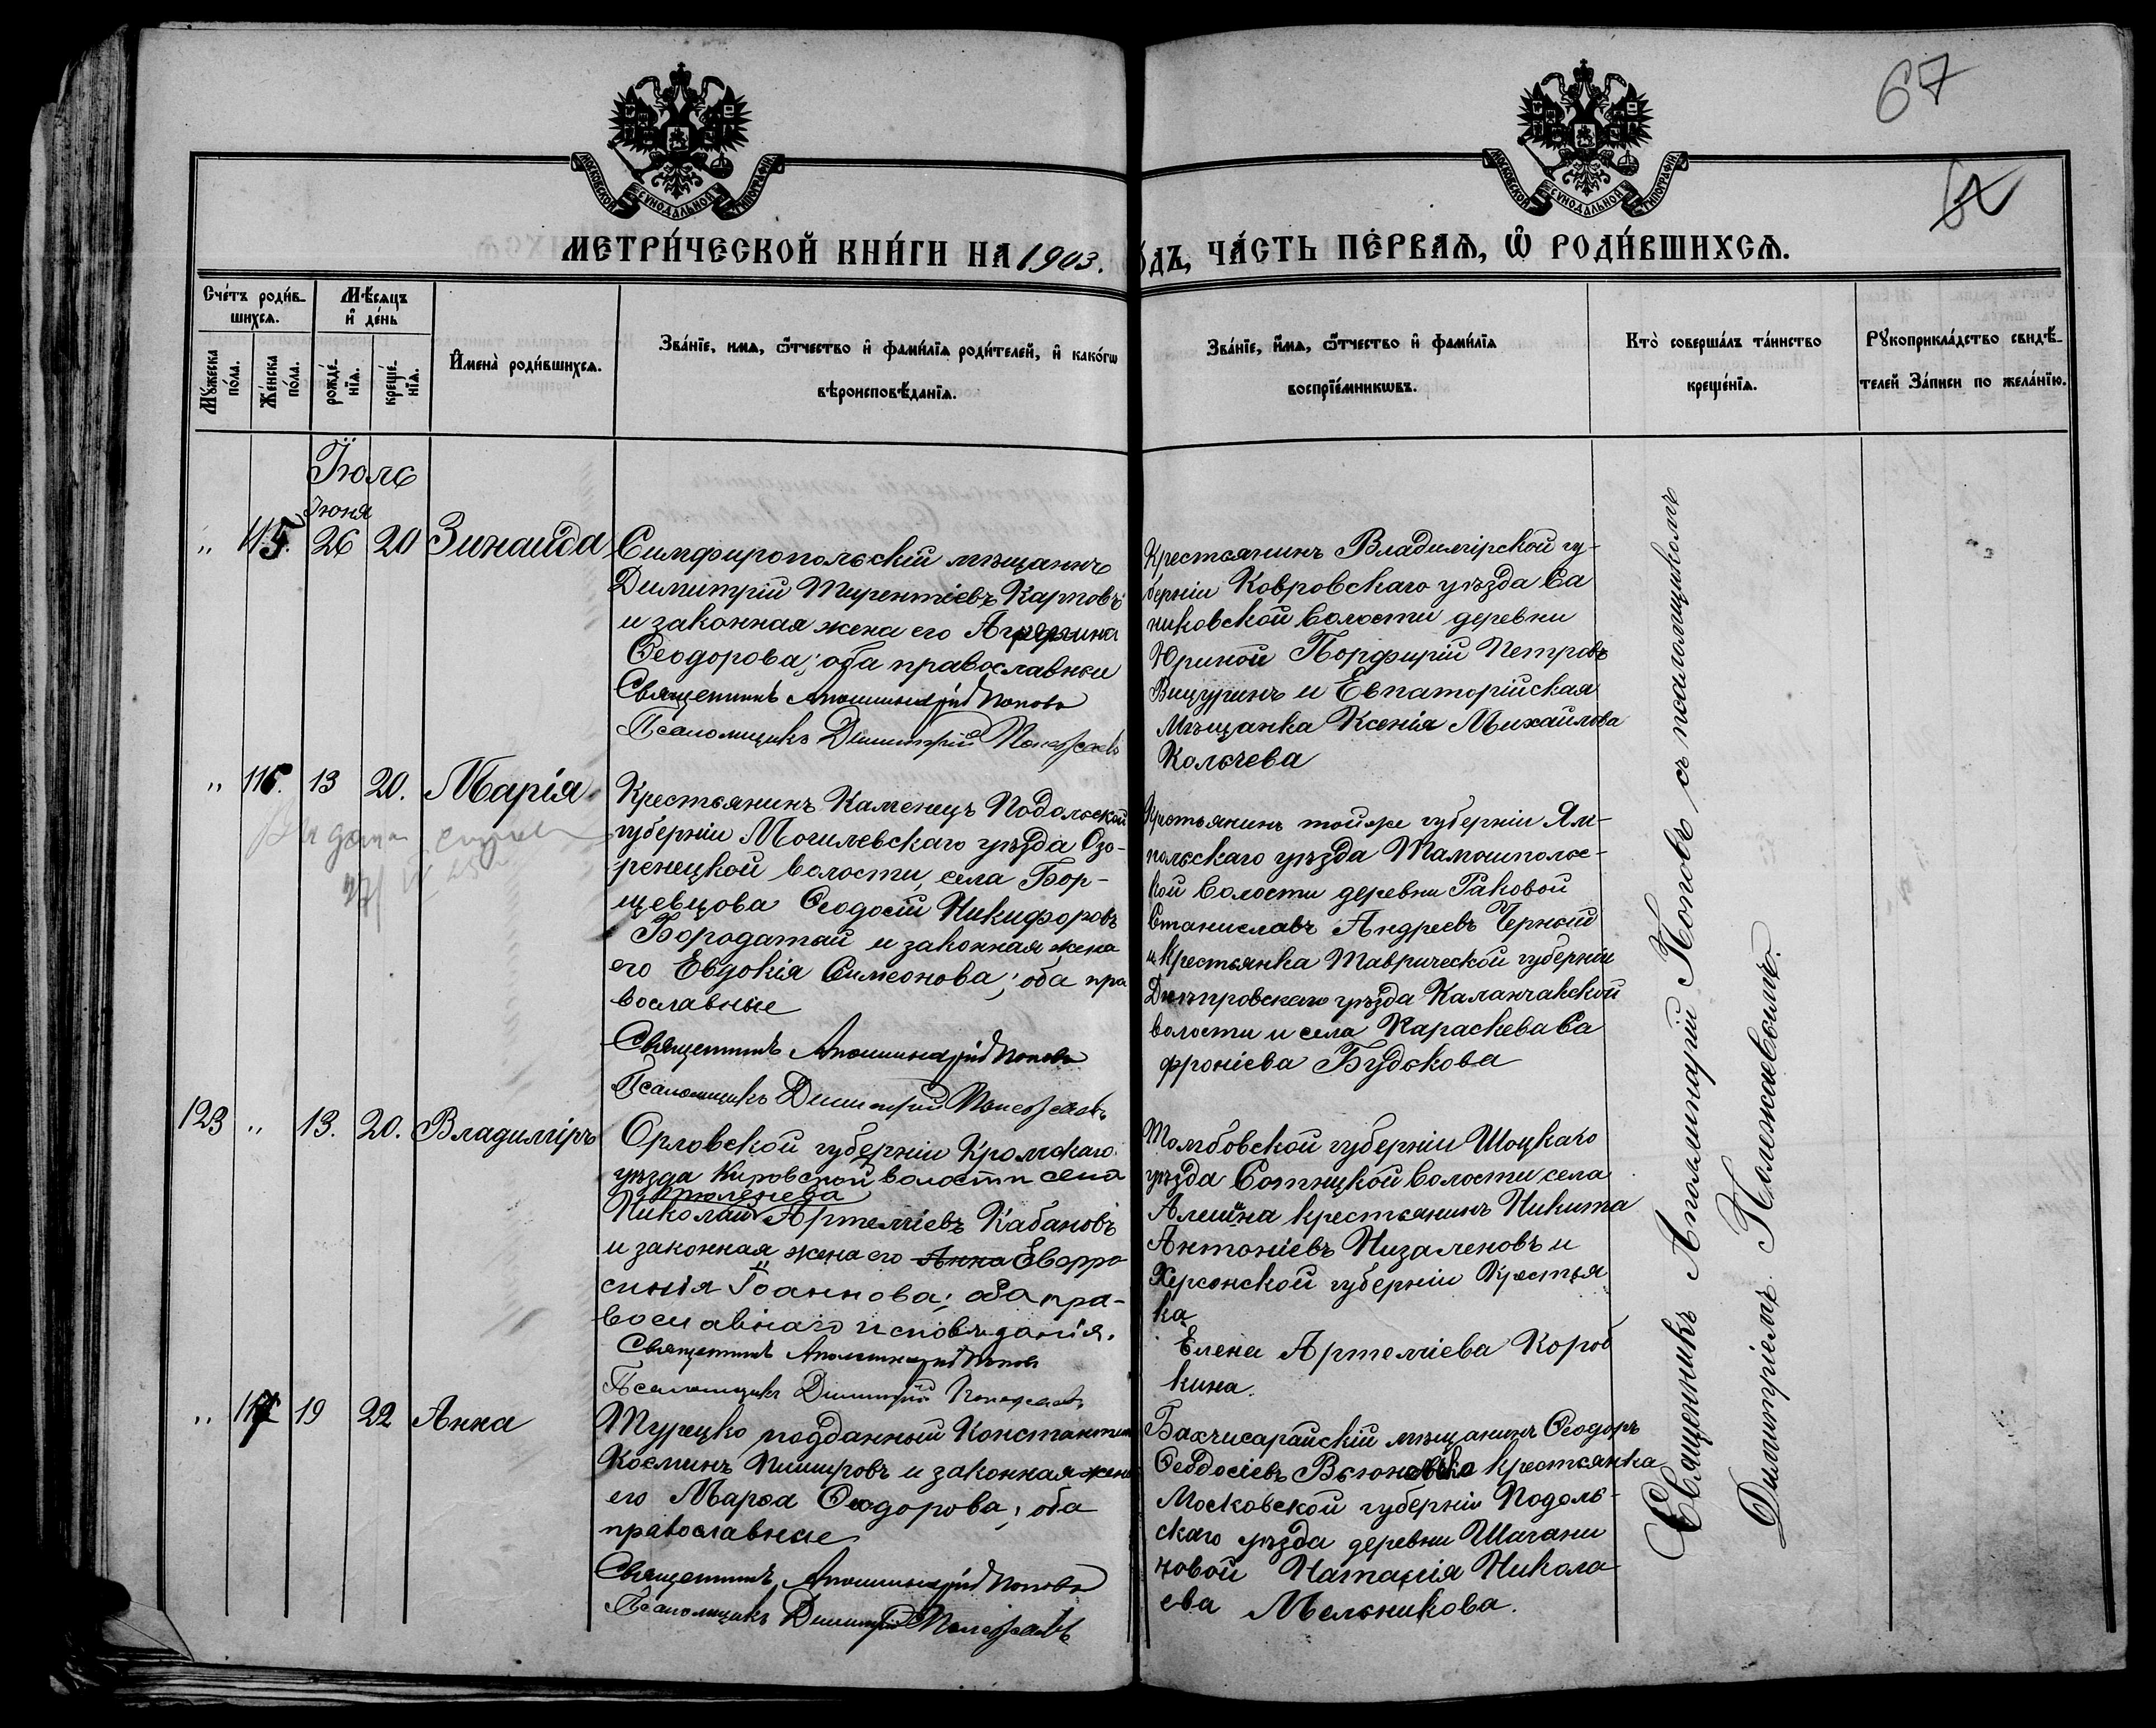 67
МОСКОВСКОЙ СѴНОДАЛЬНОЙ ТИПОГРАФІИ
МОСКОВСКОЙ СѴНОДАЛЬНОЙ ТИПОГРАФІИ
МЕТРИ́ЧЕСКОЙ КНИ́ГИ НА 1903. ГО́ДЪ, ЧА́СТЬ ПЕ́РВАѦ, Ѿ РОДИ́ВШИХСѦ.
Сче́тъ роди́в-
шихсѧ.
Мѣ́сѧцъ
и҆ де́нь
Мꙋ́жеска
по́ла.
Же́нска
по́ла.
рожде́-
нїѧ.
креще́-
нїѧ.
И҆мена̀ роди́вшихсѧ.
Зва́нїе, имѧ, ѻ҆́тчество и҆ фами́лїѧ роди́телей, и҆ како́гѡ
вѣроисповѣ́данїѧ.
Зва́нїе, и҆́мѧ, ѻ҆́тчество и҆ фами́лїѧ
воспрїе́мникѡвъ.
Кто̀ соверша́лъ та́инство
креще́нїѧ.
Рꙋкоприкла́дство свидѣ́-
телей За́писи по жела́нїю.
Іюль
Іюня
" 115. 26 20 Зинаида
Симферопольскій мѣщанинъ
Димитрій Терентіевъ Карповъ
и законная жена его Агрефина
Ѳеодорова; оба православные
Священникъ Аполлинарій Поповъ
Псаломщикъ Димитрій Полежаевъ
Крестьянинъ Владимірской гу-
берніи Ковровскаго уѣзда Са
никовской волости деревни
Юриной Порфирій Петровъ
Вицуринъ и Евпаторійская
Мѣщанка Ксенія Михайлова
Кольчева
" 116. 13 20. Марія
Крестьянинъ Каменецъ Подольской
губерніи Могилевскаго уѣзда Озо-
ренецкой волости, села Бор-
щевцова Ѳеодосій Никифоровъ
Бородатый и законная жена
его Евдокія Симеонова; оба пра
вославные
Священникъ Аполлинарій Поповъ
Псаломщикъ Димитрій Полежаевъ
Крестьянинъ тойже губерніи Ям-
польскаго уѣзда Томашполь-
кой волости деревни Раковой
Станиславъ Андреевъ Черный
и Крестьянка Таврической губерніи
Днѣпровскаго уѣзда Каланчакской
волости и села Параскева Са
фроніева Будькова
123 " 13. 20. Владиміръ
Орловской губерніи Кромскаго
уѣзда Кировской волости села
Николай Артеміевъ Кабановъ
и законная жена его Анна Евфро
синія Іоаннова; оба пра-
вославнаго исповѣданія.
Священникъ Аполлинарій Поповъ
Псаломщикъ Димитрій Полежаевъ
Тамбовской губерніи Шацкаго
уѣзда Сотницкой волости села
Алешина крестьянинъ Никита
Антоніевъ Низаленовъ и
Херсонской губерніи Крестья
ка
Елена Артеміева Короб
кина.
" 117 19 22 Анна
Турецко подданный Константинъ
Косминъ Пишировъ и законная жена
его Марѳа Ѳеодорова; оба
православные
Священникъ Аполлинарій Поповъ
Псаломщикъ Димитрій Полежаевъ
Бахчисарайскій мѣщанинъ Ѳеодоръ
Ѳеодосіевъ крестьянка
Московской губерніи Подоль-
скаго уѣзда деревни Шагани
новой Наталія Никола
ева Мельникова.
Священникъ Аполлинарій Поповъ съ псаломщикомъ
Димитріемъ Полежаевымъ.